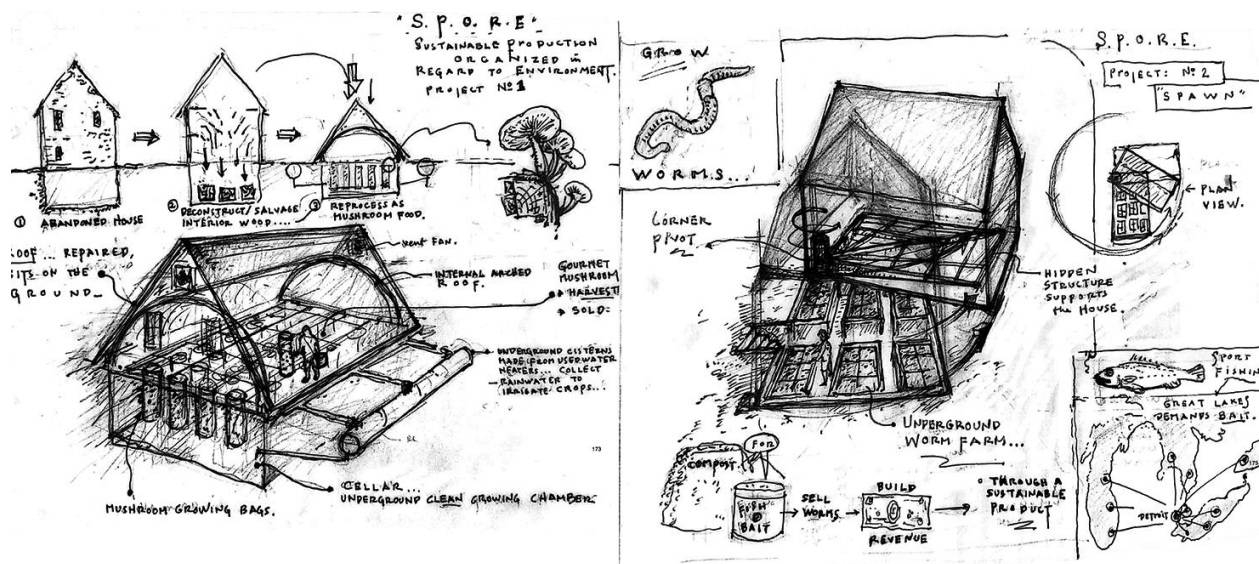 "S.P.O.R.E"
SUSTAINABLE PRODUCTION
ORGANIZED in
REGARD TO ENVIRONMENT.
PROJECT Nº 1
① ABANDONED HOUSE
② DECONSTRUCT/SALVAGE
INTERIOR WOOD....
③ REPROCESS AS
MUSHROOM FOOD.
OOF... REPAIRED,
ITS ON THE
GROUND_
VENT FAN.
INTERNAL ARCHED
ROOF.
GOURMET
MUSHROOM
HARVEST
SOLD:
UNDERGROUND CISTERNS
MADE FROM USED WATER
HEATERS... COLLECT
RAINWATER TO
IRRIGATE CROPS...
173
CELLAR...
UNDERGROUND CLEAN GROWING CHAMBER
MUSHROOM GROWING BAGS.
GROW
WORMS...
S.P.O.R.E.
PROJECT: Nº 2
"SPAWN"
PLAN
VIEW.
CORNER
PIVOT
HIDDEN
STRUCTURE
SUPPORTS
the HOUSE.
UNDERGROUND
WORM FARM...
COMPOST
FOR
FISH
BAIT
SELL
WORMS
BUILD
REVENUE
THROUGH A
SUSTAINABLE
PRODUCT
SPORT
FISHIN
GREAT LAKES
DEMANDS BAIT.
DETROIT
173